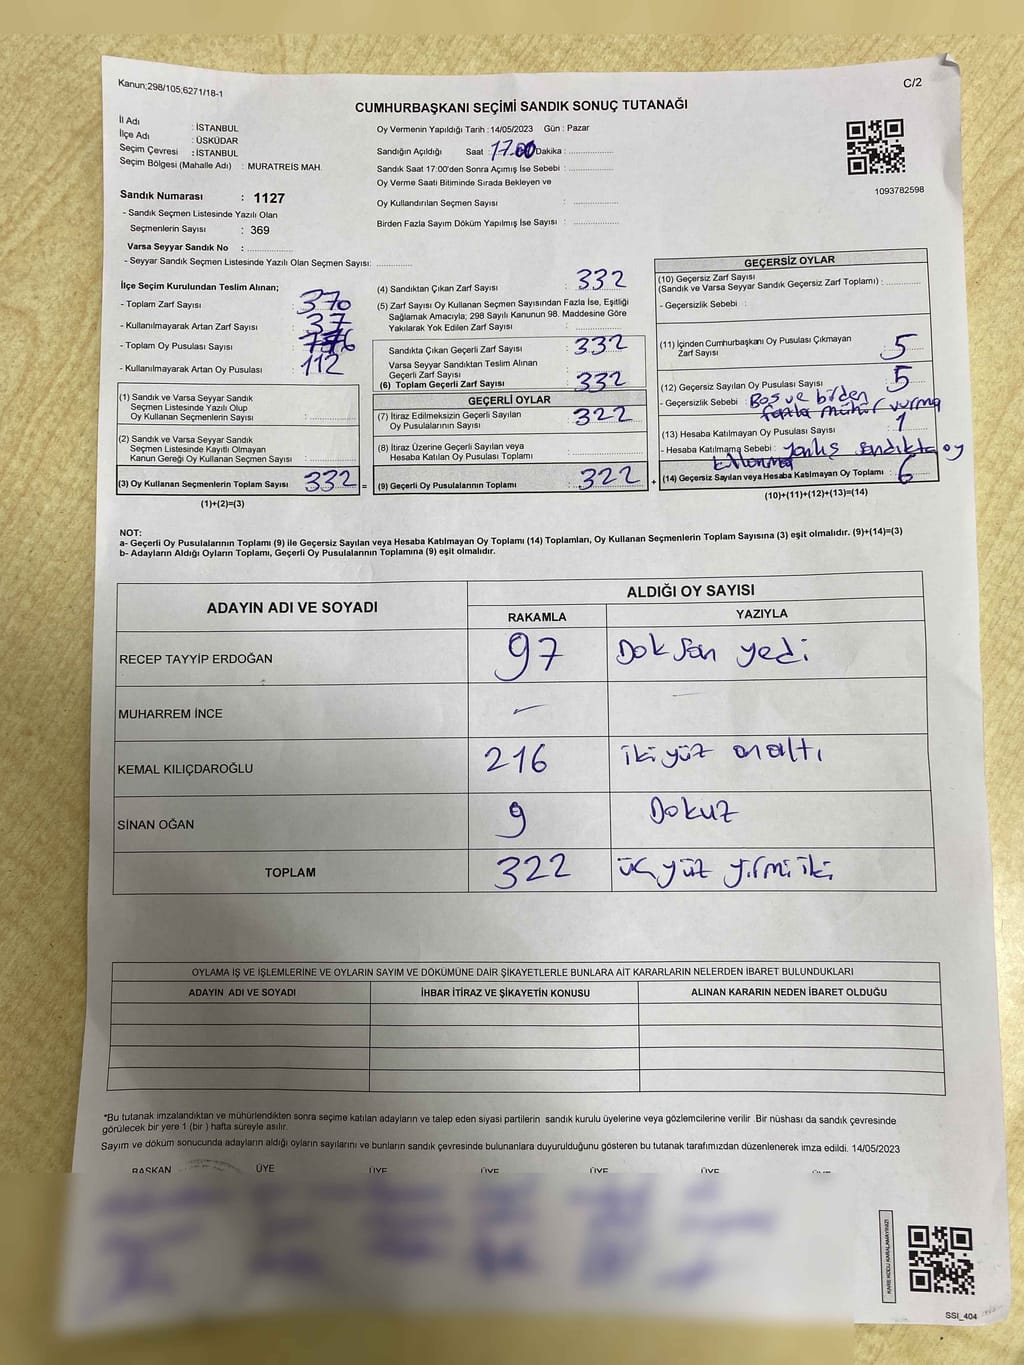 Kanun;298/105;6271/18-1
C/2
CUMHURBAŞKANI SEÇİMİ SANDIK SONUÇ TUTANAĞI
İl Adı : İSTANBUL
İlçe Adı : ÜSKÜDAR
Seçim Çevresi : İSTANBUL
Seçim Bölgesi (Mahalle Adı) : MURATREİS MAH.
Sandık Numarası : 1127
- Sandık Seçmen Listesinde Yazılı Olan
Seçmenlerin Sayısı : 369
Varsa Seyyar Sandık No : ..............
- Seyyar Sandık Seçmen Listesinde Yazılı Olan Seçmen Sayısı: ............
Oy Vermenin Yapıldığı Tarih : 14/05/2023 Gün : Pazar
Sandığın Açıldığı Saat : 17.00 Dakika : ..............
Sandık Saat 17:00'den Sonra Açımış İse Sebebi : ..............
Oy Verme Saati Bitiminde Sırada Bekleyen ve
Oy Kullandırılan Seçmen Sayısı : ..............
Birden Fazla Sayım Döküm Yapılmış İse Sayısı : ..............
1093782598
İlçe Seçim Kurulundan Teslim Alınan;
- Toplam Zarf Sayısı : 370
- Kullanılmayarak Artan Zarf Sayısı : 37
- Toplam Oy Pusulası Sayısı :
- Kullanılmayarak Artan Oy Pusulası : 112
(1) Sandık ve Varsa Seyyar Sandık
Seçmen Listesinde Yazılı Olup
Oy Kullanan Seçmenlerin Sayısı : ..............
(2) Sandık ve Varsa Seyyar Sandık
Seçmen Listesinde Kayıtlı Olmayan
Kanun Gereği Oy Kullanan Seçmen Sayısı : ..............
(3) Oy Kullanan Seçmenlerin Toplam Sayısı : 332 =
(1)+(2)=(3)
(4) Sandıktan Çıkan Zarf Sayısı : 332
(5) Zarf Sayısı Oy Kullanan Seçmen Sayısından Fazla İse, Eşitliği
Sağlamak Amacıyla; 298 Sayılı Kanunun 98. Maddesine Göre
Yakılarak Yok Edilen Zarf Sayısı : ..............
Sandıkta Çıkan Geçerli Zarf Sayısı : 332
Varsa Seyyar Sandıktan Teslim Alınan
Geçerli Zarf Sayısı : ..............
(6) Toplam Geçerli Zarf Sayısı : 332
GEÇERLİ OYLAR
(7) İtiraz Edilmeksizin Geçerli Sayılan
Oy Pusulalarının Sayısı : 322
(8) İtiraz Üzerine Geçerli Sayılan veya
Hesaba Katılan Oy Pusulası Toplamı : ..............
(9) Geçerli Oy Pusulalarının Toplamı : 322 +
GEÇERSİZ OYLAR
(10) Geçersiz Zarf Sayısı
(Sandık ve Varsa Seyyar Sandık Geçersiz Zarf Toplamı) : ............
- Geçersizlik Sebebi :
(11) İçinden Cumhurbaşkanı Oy Pusulası Çıkmayan
Zarf Sayısı : 5
(12) Geçersiz Sayılan Oy Pusulası Sayısı : 5
- Geçersizlik Sebebi : Boş ve birden
fazla mühür vurma
(13) Hesaba Katılmayan Oy Pusulası Sayısı : 1
- Hesaba Katılmama Sebebi : yanlış sandıkta oy
kullanma
(14) Geçersiz Sayılan veya Hesaba Katılmayan Oy Toplamı : 6
(10)+(11)+(12)+(13)=(14)
NOT:
a- Geçerli Oy Pusulalarının Toplamı (9) ile Geçersiz Sayılan veya Hesaba Katılmayan Oy Toplamı (14) Toplamları, Oy Kullanan Seçmenlerin Toplam Sayısına (3) eşit olmalıdır. (9)+(14)=(3)
b- Adayların Aldığı Oyların Toplamı, Geçerli Oy Pusulalarının Toplamına (9) eşit olmalıdır.
ADAYIN ADI VE SOYADI ALDIĞI OY SAYISI
RAKAMLA YAZIYLA
RECEP TAYYİP ERDOĞAN 97 Doksan yedi
MUHARREM İNCE –
KEMAL KILIÇDAROĞLU 216 ikiyüz onaltı
SİNAN OĞAN 9 Dokuz
TOPLAM 322 üçyüz yirmi iki
OYLAMA İŞ VE İŞLEMLERİNE VE OYLARIN SAYIM VE DÖKÜMÜNE DAİR ŞİKAYETLERLE BUNLARA AİT KARARLARIN NELERDEN İBARET BULUNDUKLARI
ADAYIN ADI VE SOYADI İHBAR İTİRAZ VE ŞİKAYETİN KONUSU ALINAN KARARIN NEDEN İBARET OLDUĞU
*Bu tutanak imzalandıktan ve mühürlendikten sonra seçime katılan adayların ve talep eden siyasi partilerin sandık kurulu üyelerine veya gözlemcilerine verilir .Bir nüshası da sandık çevresinde
görülecek bir yere 1 (bir ) hafta süreyle asılır.
Sayım ve döküm sonucunda adayların aldığı oyların sayılarını ve bunların sandık çevresinde bulunanlara duyurulduğunu gösteren bu tutanak tarafımızdan düzenlenerek imza edildi. 14/05/2023
BAŞKAN ÜYE ÜYE ÜYE ÜYE ÜYE
KARE KODU KARALAMAYINIZ!
SSI_404